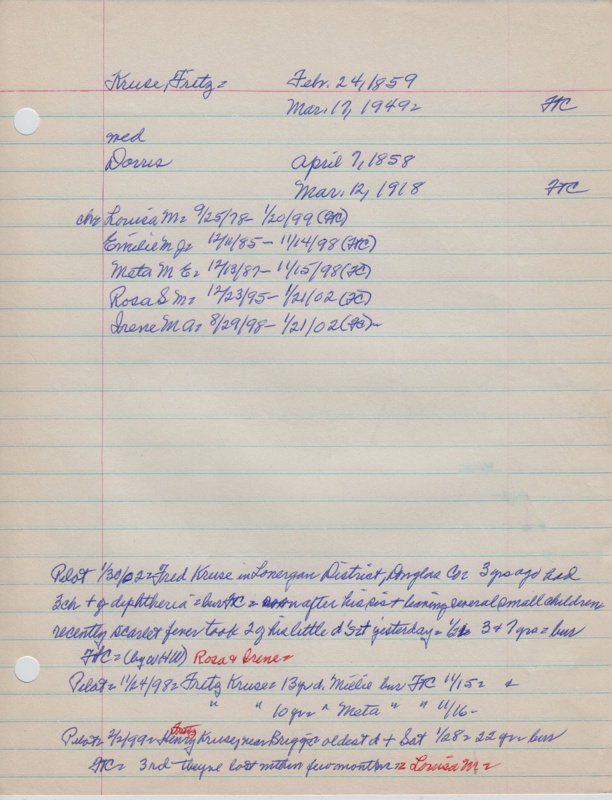 Kruse, Fritz = Feb. 24, 1859
Mar. 17, 1949 = FtC
med
Dorris April 7, 1858
Mar. 12, 1918 FtC
ch = Louisa M = 9/25/78 - 1/20/99 (FtC)
Emilie M J = 12/11/85 - 11/14/98 (FtC)
Meta M E = 12/13/87 - 11/15/98 (FtC)
Rosa S M = 12/23/95 - 1/21/02 (FtC)
Irene M A = 8/29/98 - 1/21/02 (FtC) -
Pilot 1/30/02 = Fred Kruse in Lonergan District, Douglas Co = 3 yrs ago had
3 ch + of diphtheria = bur FtC = after his sis + several small children
recently scarlet fever took 2 of his little d's Sat yesterday = 3 + 7 yrs = bur
FtC = (by W HW) Rosa & Irene =
Pilot = 11/24/98 = Fritz Kruse = 13 yr d. Millie bur FtC 11/15 = +
" " 10 yr = " Meta " " 11/16 -
Pilot = 2/2/99 = Henry Fritz Kruse, near Briggs oldest d + Sat 1/28 = 22 yr = bur
FtC = 3rd they've lost within few months = Louisa M =